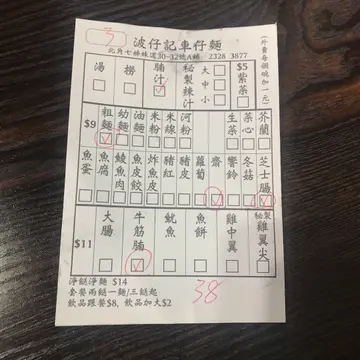 3
波仔記車仔麵
北角七姊妹道30-32號A舖 2328 3877
(外賣每個碗加一元)
湯 撈 腩汁 秘製辣汁 大 中 小 $5 紫菜
$9 粗麵 幼麵 油麵 米粉 米線 河粉 生菜 菜心 芥蘭
魚蛋 魚腐 鯪魚肉 魚皮餃 炸魚皮 豬紅 豬皮 蘿蔔 齋 響鈴 冬菇 芝士腸
$11 大腸 牛筋腩 魷魚 魚餅 雞中翼 秘製雞翼尖
淨餸淨麵 $14
套餐兩餸一麵/三餸起
飲品跟餐$8, 飲品加大$2
38